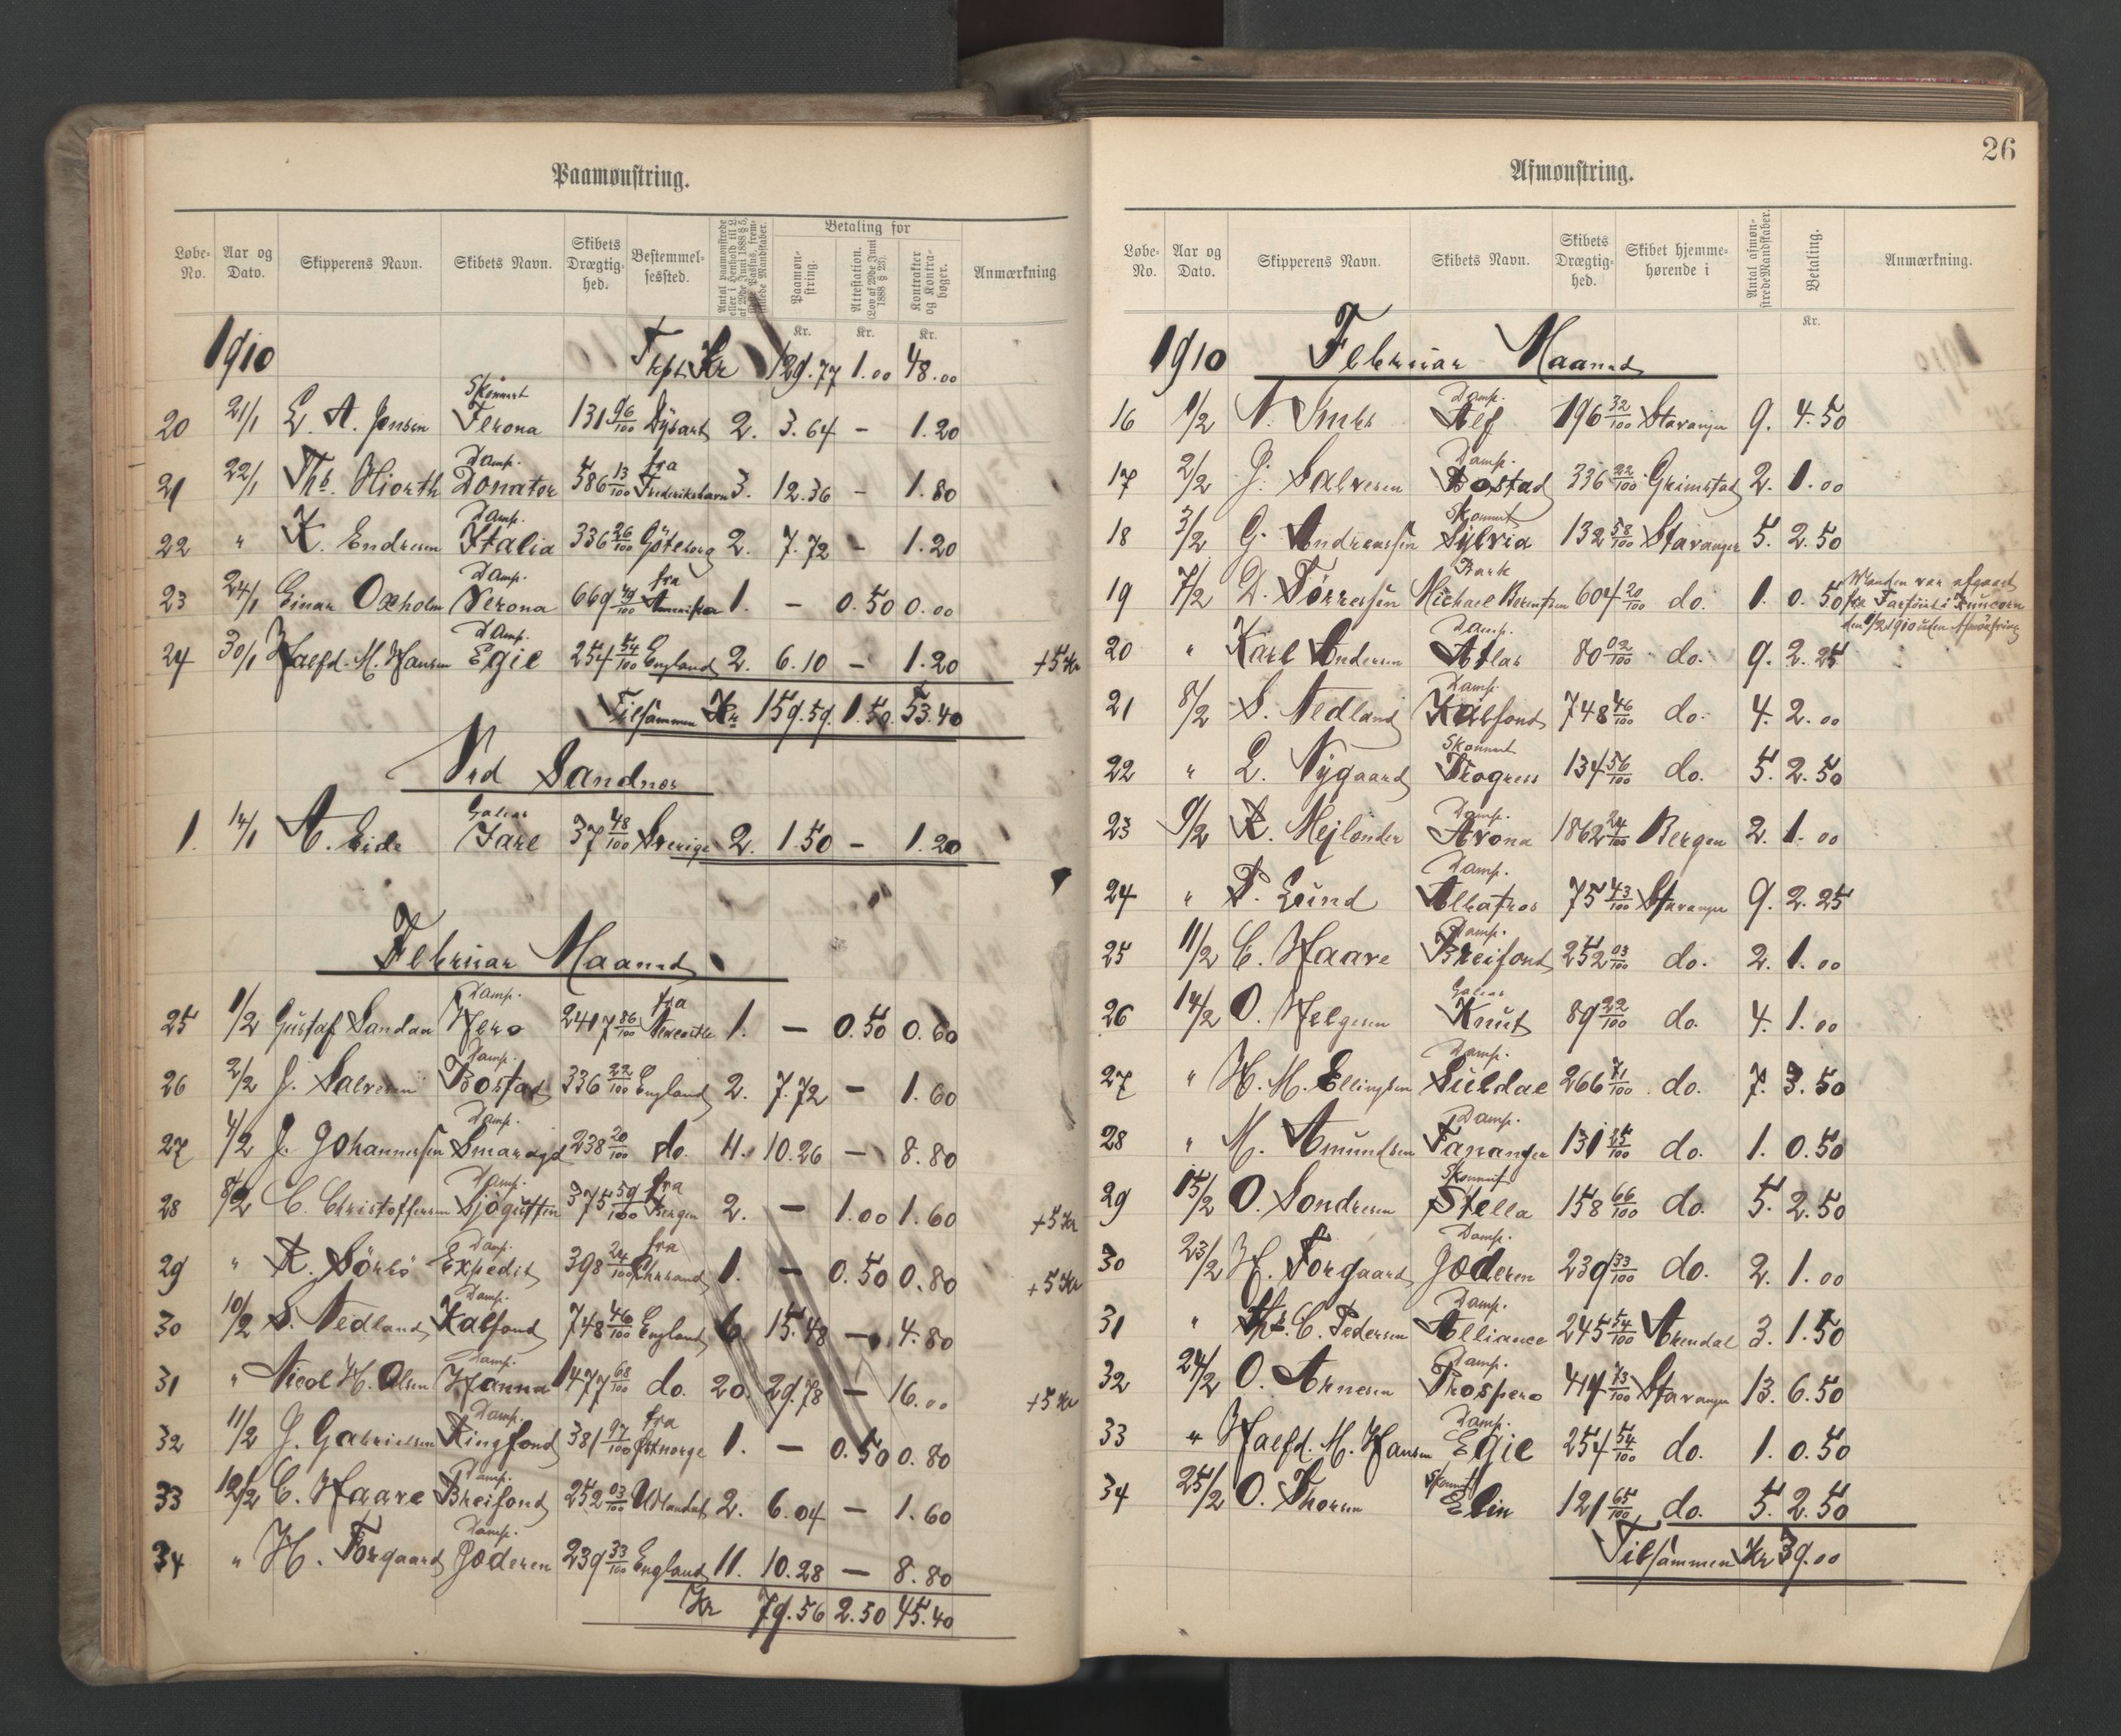 Paamønstring.
Løbe-No. Aar og Dato. Skipperens Navn. Skibets Navn. Skibets Drægtig-hed. Bestemmel-sessted. Antal paamønstrede eller i Henhold til L. af 29de Juni 1888 § 5, Passus, frem-stillede Mandskaber. Betaling for Paamøn-string. Attestation. (Lov af 29de Juni 1888 § 23). Kontrakter og Kontra-bøger. Anmærkning
Kr. Kr. Kr.
1910 Trpt. Kr 129.77 1.00 48.00
20 21/1 L. A. Jensen Skonnert Verona 131 96/100 Dysart 2. 3.64 – 1.20
21 22/1 Ths. Hiorth Damp. Donator 586 13/100 fra Frederikshavn 3. 12.36 – 1.80
22 " K. Endresen Damp. Italia 336 26/100 Göteborg 2. 7.72 – 1.20
23 24/1 Einar Oxholm Damp. Verona 669 49/100 fra Amerika 1. – 0.50 0.00
24 30/1 Halfd. M. Hansen Damp. Egil 254 54/100 England 2. 6.10 – 1.20 +5 Kr
Tilsammen Kr 159.59 1.50 53.40
Ved Sandnes
1. 14/1 A. Eide Galeas Jarl 37 48/100 Sverige 2. 1.50 – 1.20
Februar Maaned
25 1/2 Gustaf Sandan Damp. Hero 2417 86/100 fra Newcastle 1. – 0.50 0.60
26 2/2 J. Salvesen Damp. Bostad 336 22/100 England 2. 7.72 – 1.60
27 4/2 J. Johannessen Damp. Smaragd 238 20/100 do. 11. 10.26 – 8.80
28 8/2 C. Christoffersen Damp. Sjøgutten 375 59/100 fra Bergen 2. – 1.00 1.60 +5 Kr
29 " R. Sörbö Damp. Expedit 398 24/100 fra Chrsand 1. – 0.50 0.80 +5 Kr
30 10/2 S. Nedland Damp. Kalfond 748 46/100 England 6. 15.48 – 4.80
31 " Nicol H. Olsen Damp. Hanna 1477 68/100 do. 20. 29.78 – 16.00 +5 Kr
32 11/2 J. Gabrielsen Damp. Ringfond 381 97/100 fra Østnorge 1. – 0.50 0.80
33 12/2 C. Haave Damp. Breifond 252 03/100 Udlandet 2. 6.04 – 1.60
34 " H. Torgaard Damp. Jæderen 239 33/100 England 11. 10.28 – 8.80
Kr 79.56 2.50 45.40
26
Afmønstring.
Løbe-No. Aar og Dato. Skipperens Navn. Skibets Navn. Skibets Drægtig-hed. Skibet hjemme-hørende i Antal afmøn-strede Mandskaber. Betaling. Anmærkning.
Kr.
1910 Februar Maaned
16 1/2 N. Damp. Alf 196 32/100 Stavanger 9. 4.50
17 2/2 J. Salvesen Damp. Bostad 336 22/100 Grimstad 2. 1.00
18 3/2 G. Andreassen Skonnert Sylvia 132 58/100 Stavanger 5. 2.50
19 7/2 D. Törressen Bark Michael Berentsen 604 20/100 do. 1. 0.50 Manden var afgaaet fra Fartöiet i den 9/2 1910 uden Afmønstring
20 " Karl Andersen Damp. Atlas 80 02/100 do. 9. 2.25
21 8/2 S. Nedland Damp. Kalfond 748 46/100 do. 4. 2.00
22 " L. Nygaard Skonnert Progress 134 56/100 do. 5. 2.50
23 9/2 K. Mejlænder Damp. Arona 1862 24/100 Bergen 2. 1.00
24 " P. Lund Damp. Albatros 75 43/100 Stavanger 9. 2.25
25 11/2 C. Haave Damp. Breifond 252 03/100 do. 2. 1.00
26 14/2 O. Helgesen Galeas Knut 89 22/100 do. 4. 1.00
27 " H. M. Ellingsen Damp. Suldal 266 71/100 do. 7. 3.50
28 " M. Amundsen Damp. Tananger 131 25/100 do. 1. 0.50
29 15/2 O. Sondresen Skonnert Stella 158 66/100 do. 5. 2.50
30 23/2 H. Torgaard Damp. Jæderen 239 33/100 do. 2. 1.00
31 " Ths. C. Pedersen Damp. Alliance 245 54/100 Arendal 3. 1.50
32 24/2 O. Arnesen Damp. Prospero 414 73/100 Stavanger 13. 6.50
33 " Halfd. M. Hansen Damp. Egil 254 54/100 do. 1. 0.50
34 25/2 O. Thorsen Skonnert Elin 121 65/100 do. 5. 2.50
Tilsammen Kr 39.00